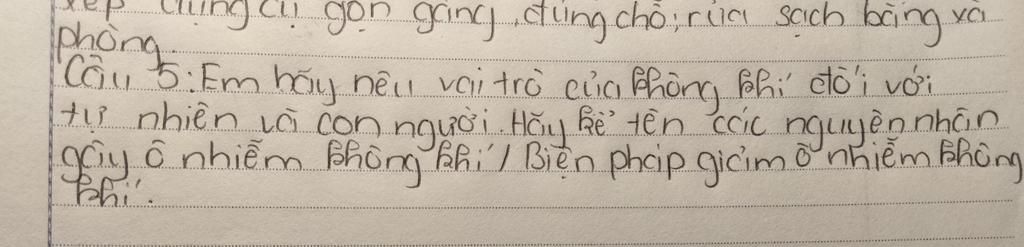 xếp dụng cụ gọn gàng, đúng chỗ; rửa sạch bằng xà
phòng.
Câu 5: Em hãy nêu vai trò của không khí đối với
tự nhiên và con người. Hãy kể tên các nguyên nhân
gây ô nhiễm không khí / Biện pháp giảm ô nhiễm không
khí.